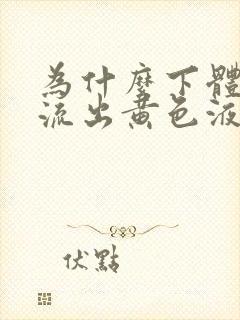 為什麼下體
流出黃色液
伏點